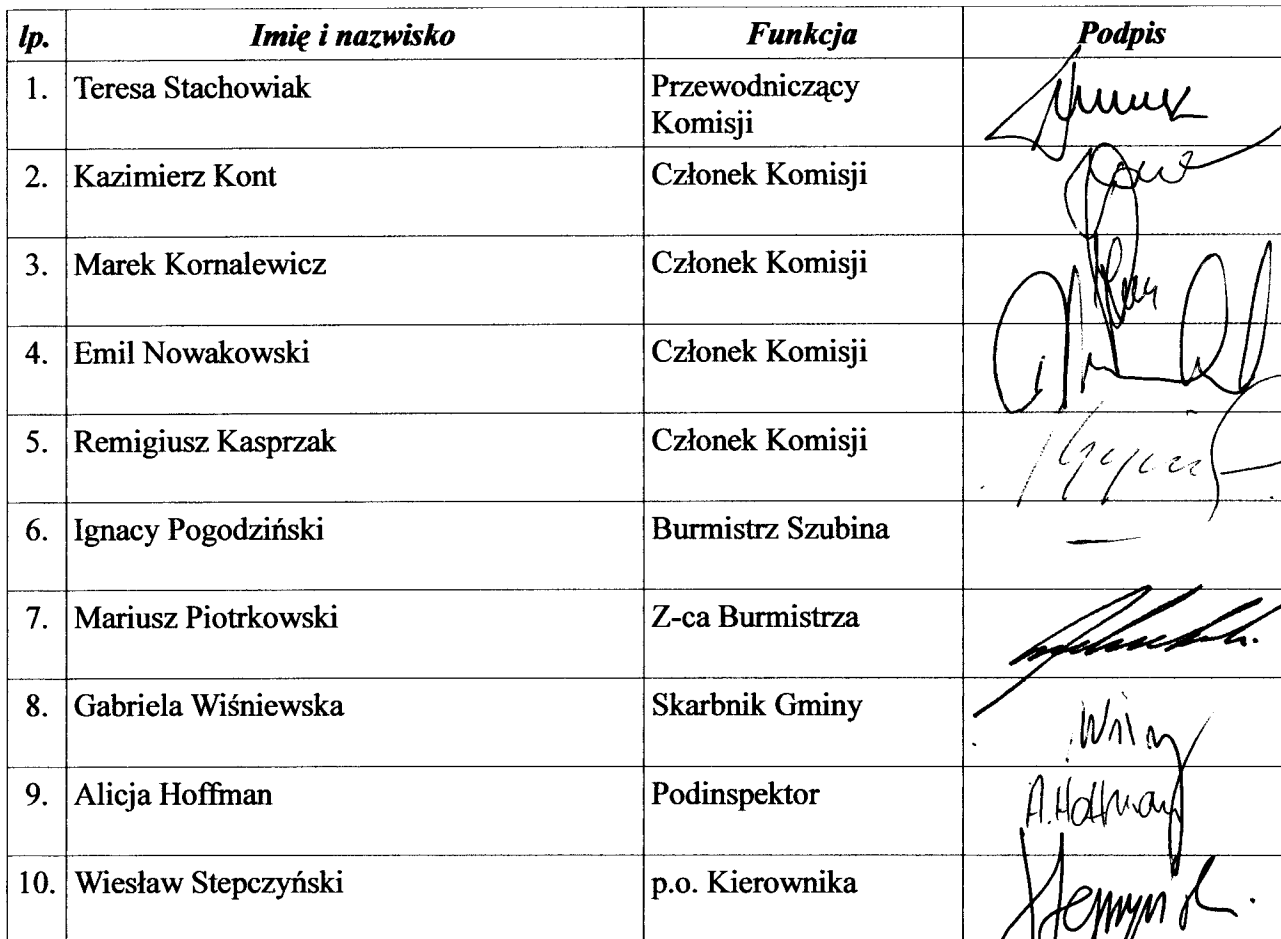 lp. Imię i nazwisko Funkcja Podpis
1. Teresa Stachowiak Przewodniczący
Komisji
2. Kazimierz Kont Członek Komisji
3. Marek Kornalewicz Członek Komisji
4. Emil Nowakowski Członek Komisji
5. Remigiusz Kasprzak Członek Komisji
6. Ignacy Pogodziński Burmistrz Szubina —
7. Mariusz Piotrkowski Z-ca Burmistrza
8. Gabriela Wiśniewska Skarbnik Gminy
9. Alicja Hoffman Podinspektor A.Hoffman
10. Wiesław Stepczyński p.o. Kierownika